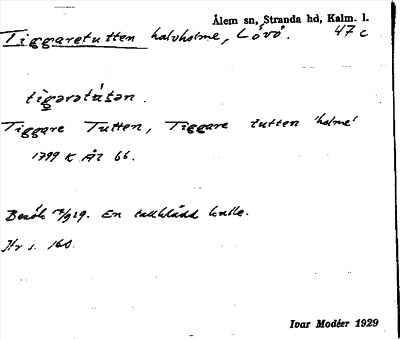 Ålem sn, Stranda hd, Kalm. l.
Tiggaretutten halvholme, Lövö. 47 c
tigarətútən.
Tiggare Tutten, Tiggare tutten 'holme'
1799 K Ål 66.
Besök 17/9 29. En tallklädd kulle.
Hr s. 160.
Ivar Modéer 1929